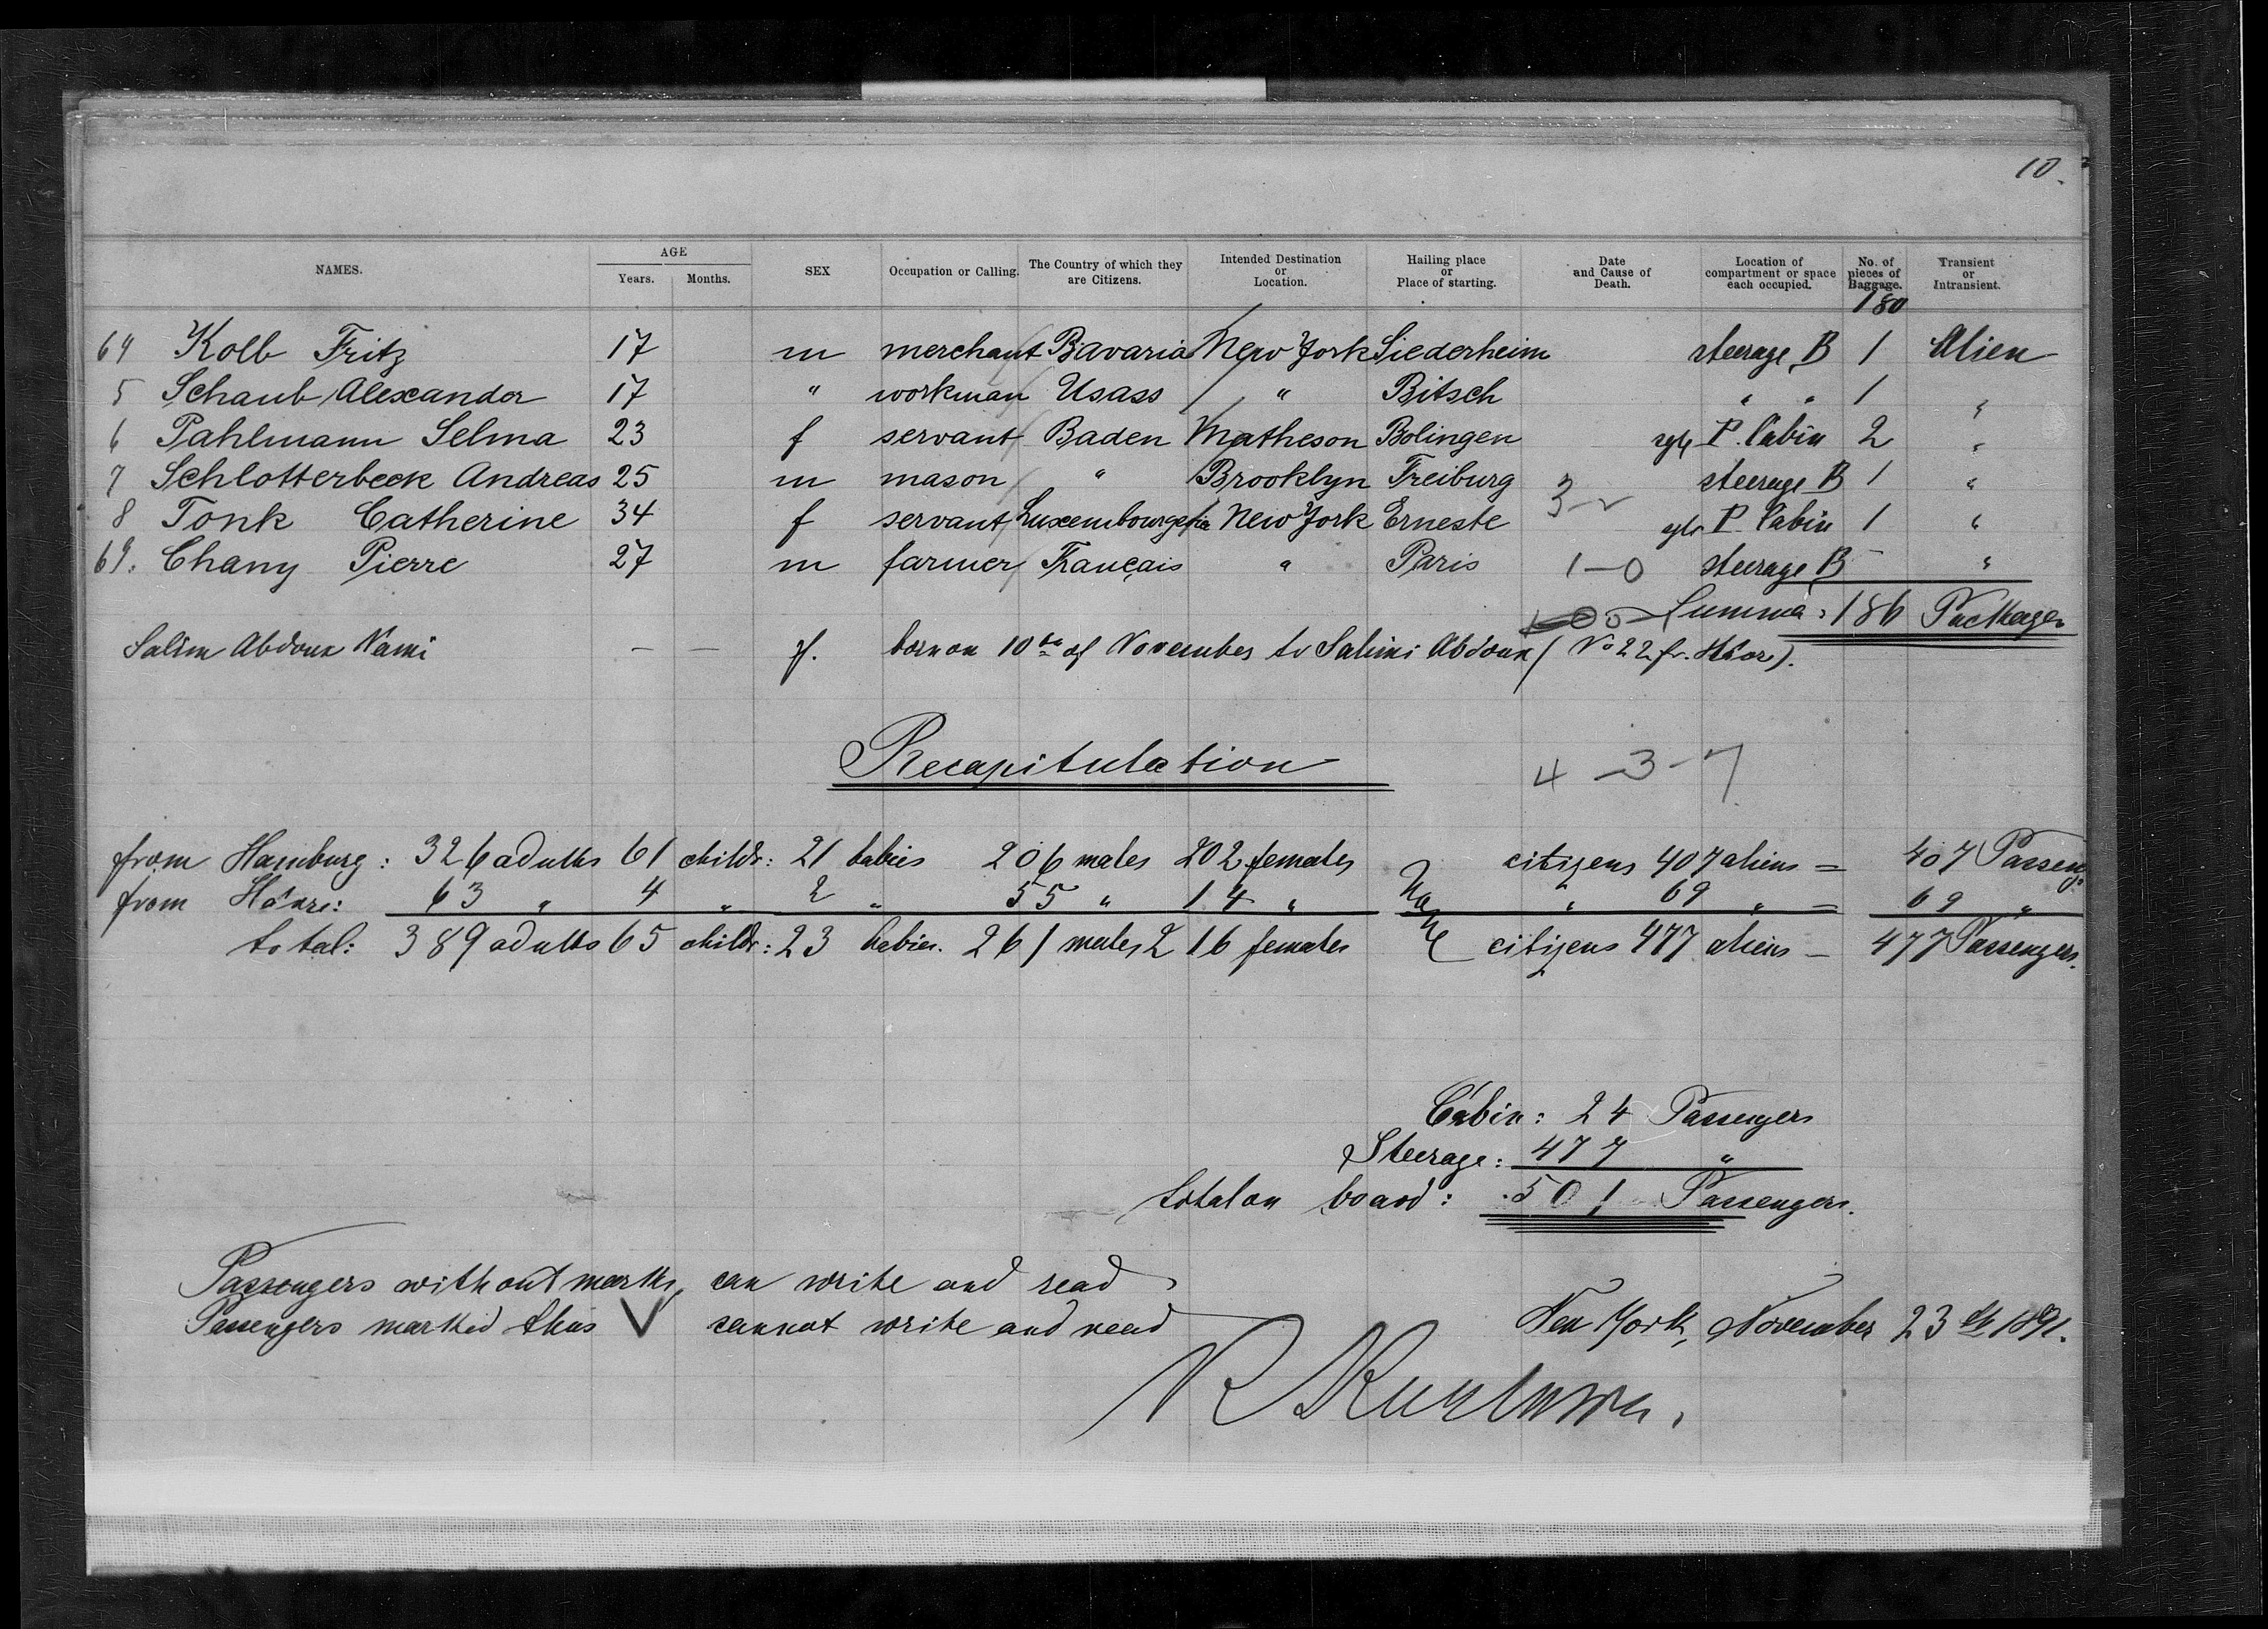 10.
NAMES. AGE Years. Months. SEX Occupation or Calling. The Country of which they are Citizens. Intended Destination or Location. Hailing place or Place of starting. Date and Cause of Death. Location of compartment or space each occupied. No. of pieces of Baggage. Transient or Intransient.
180
64 Kolb Fritz 17 m merchant Bavaria New York Siederheim steerage B 1 Alien
5 Schaub Alexander 17 " workman Elsass " Bitsch " " 1 "
6 Pahlmann Selma 23 f servant Baden Matheson Bolingen P. Cabin 2 "
7 Schlotterbeck Andreas 25 m mason " Brooklyn Freiburg steerage B 1 "
8 Tonk Catherine 34 f servant New York Erneste 3 - P. Cabin 1 "
69. Chany Pierre 27 m farmer Français " Paris 1-0 steerage B "
Summa: 186 Packages
Salim Abdoux Nami — — f. born on 10th of November to Salimi Abdoux (No 22 fr. Hâvre).
Recapitulation 4-3-7
from Hamburg: 326 adults 61 childr: 21 babies 206 males 202 females citizens 407 aliens = 407 Passeng:
from Hâvre: 63 " 4 " 2 " 55 " 14 " None " 69 " = 69 "
total: 389 adults 65 childr: 23 babies. 261 males 216 females citizens 477 aliens — 477 Passengers.
Cabin: 24 Passengers
Steerage: 477 "
total on board: 501 Passengers.
Passengers without marks, can write and read
Passengers marked thus V cannot write and read
New York, November 23th 1891.